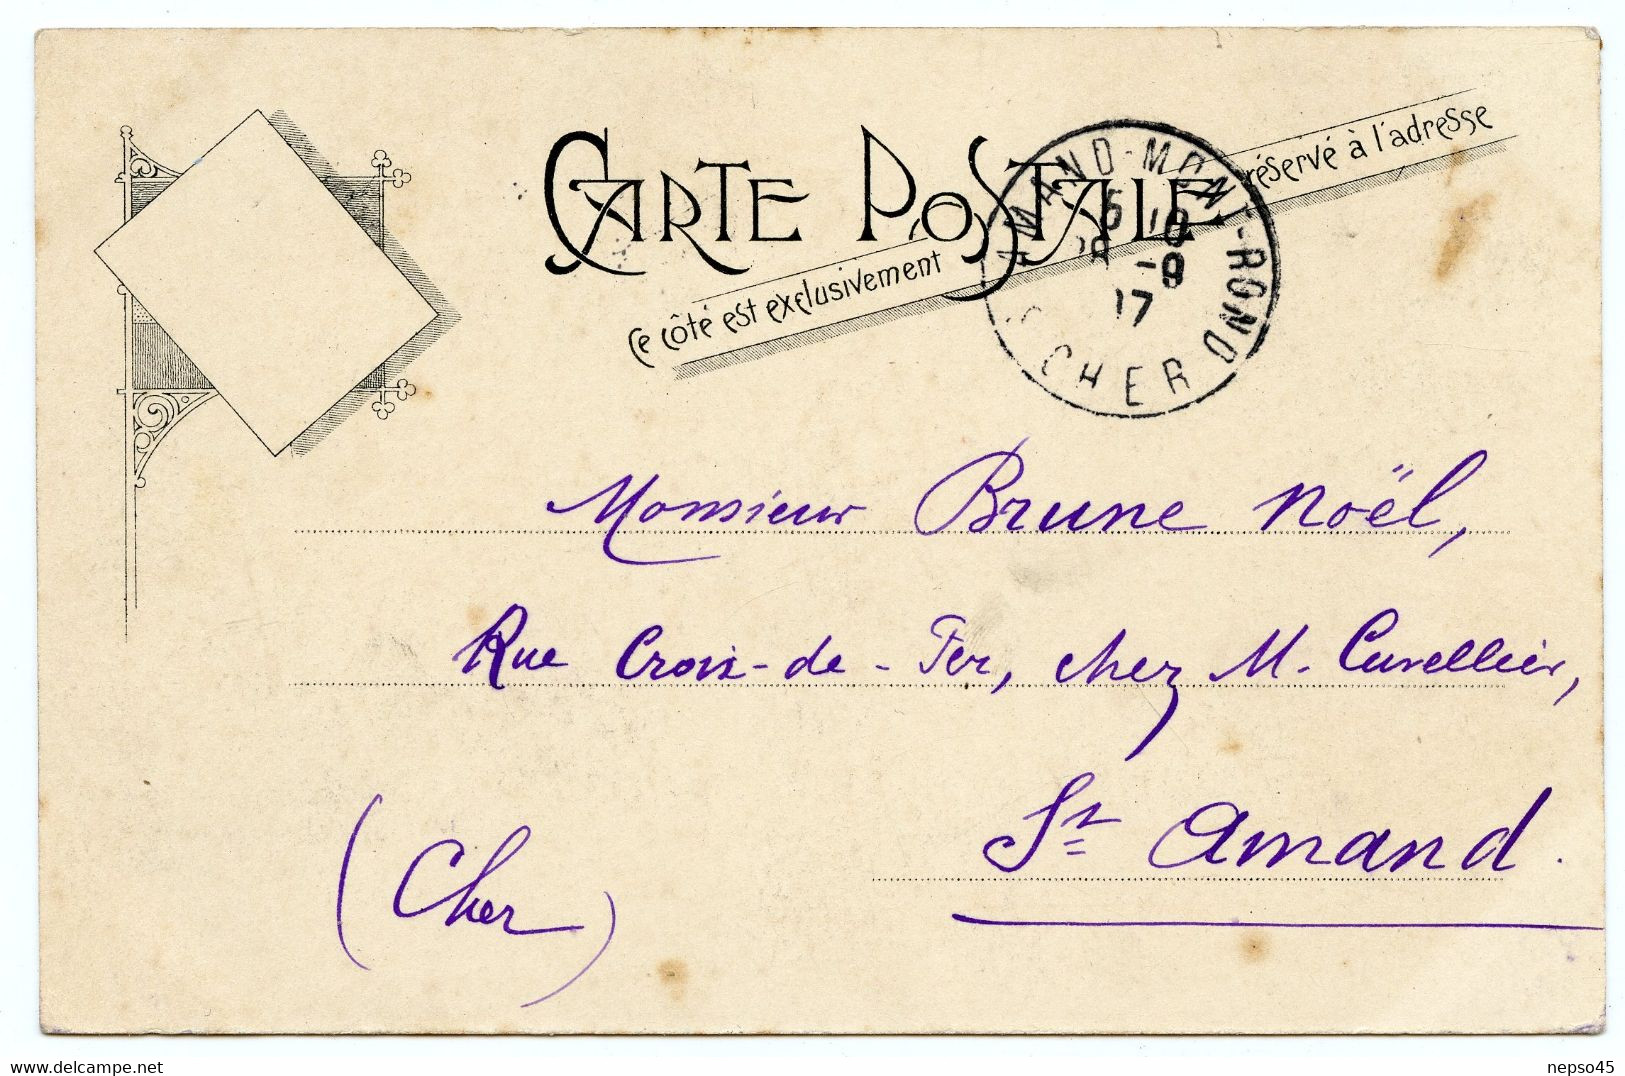 CARTE POSTALE
Ce côté est exclusivement réservé à l'adresse
AMAND-MONT-ROND
17
CHER
Monsieur Brune Noël,
Rue Croix-de-Fer, chez M. Cuvellier,
St Amand.
(Cher)
delcampe.net
nepso45